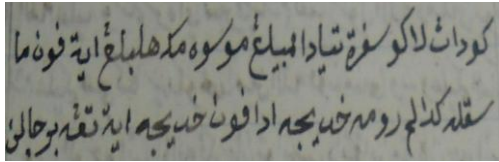 كوداڽ لاكو سفرة تيادا ممبيلڠ موسوه مك هلبلڠ اية فون ما
سقله كدالم رومه خديجه ادافون خديجه اية تڠه برجالن